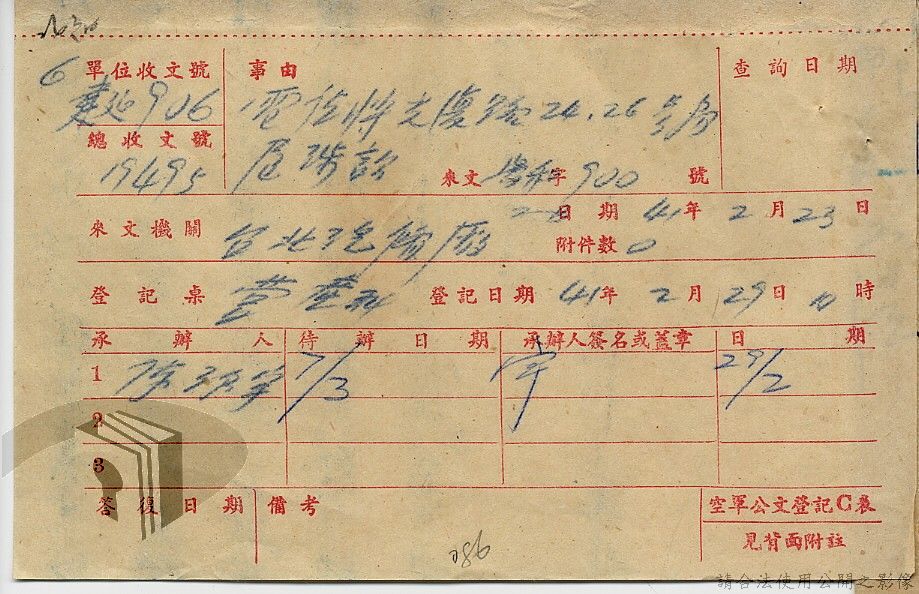 6 單位收文號 事由 查詢日期
建延906
電請將光復路24.26號房
總收文號
19495
屋
來文 字900 號
日期 41年2月23日
來文機關 台北 附件數0
登記桌 營產 登記日期 41年2月29日10時
承辦人 待辦日期 承辦人簽名或蓋章 日期
1 7/3 29/2
2
3
答復日期 備考 空軍公文登記C表
見背面附註
086
請合法使用公開之影像